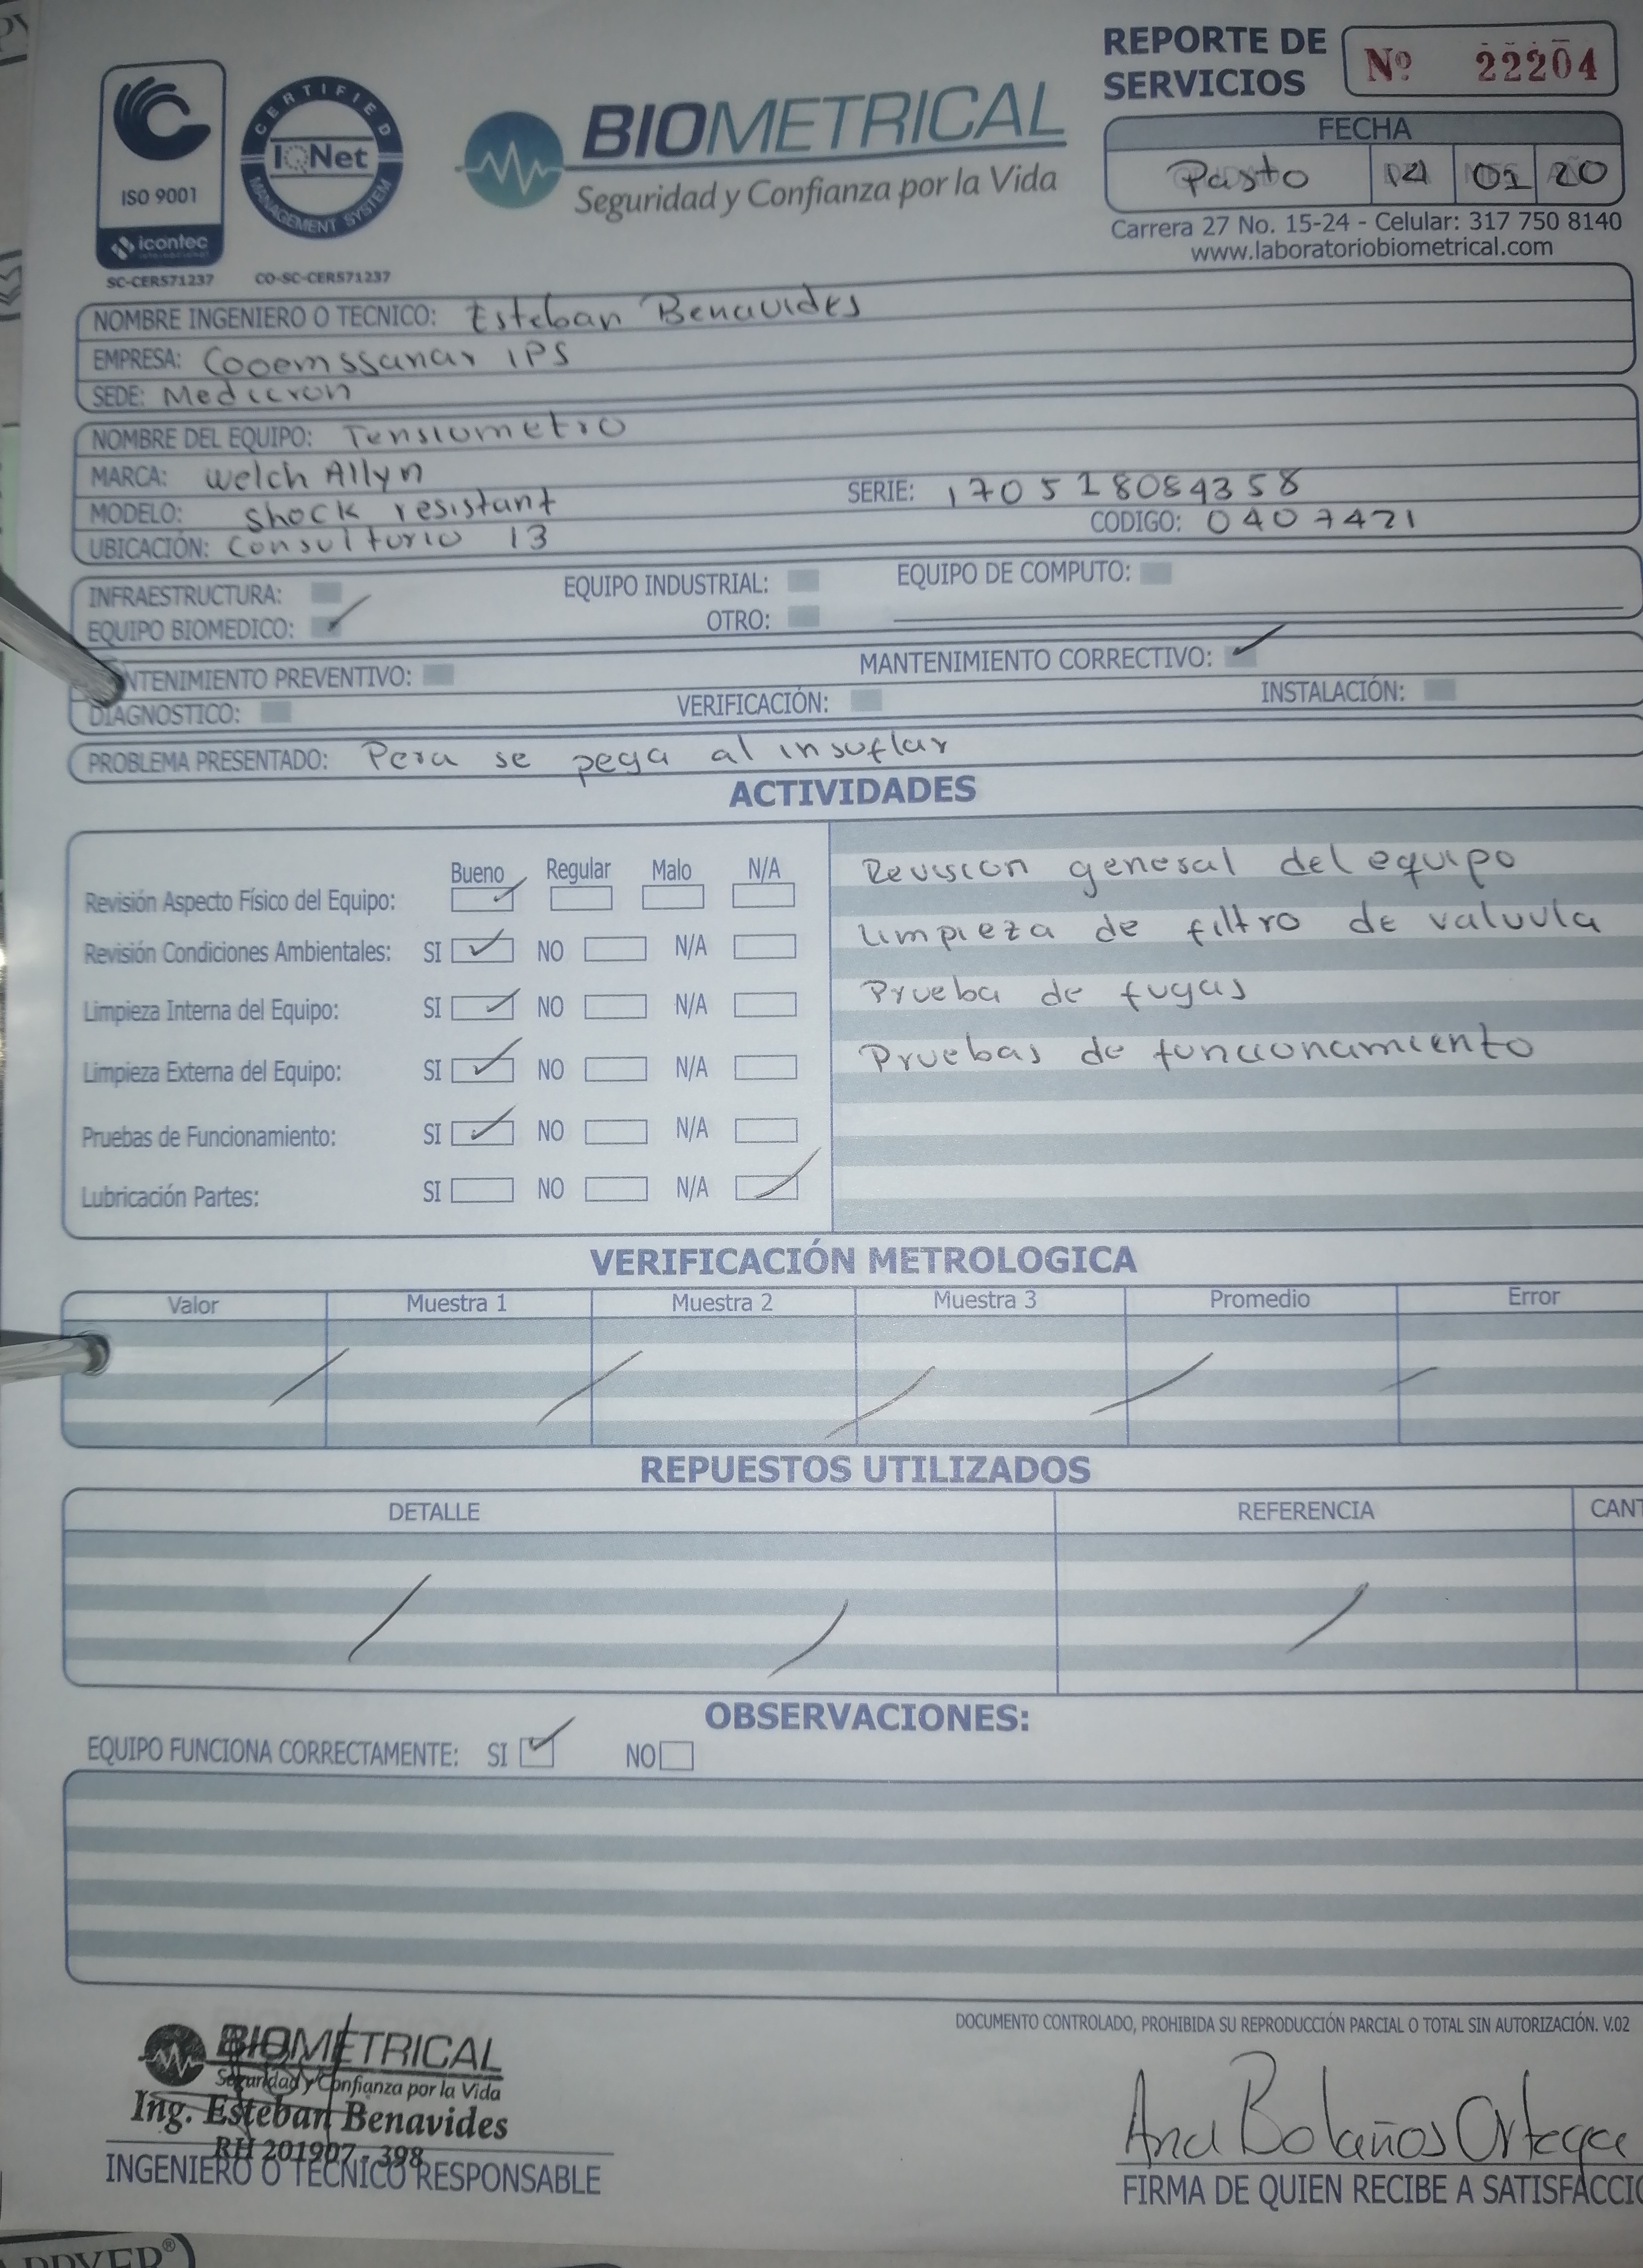 REPORTE DE
SERVICIOS
Nº 22204
ISO 9001
icontec
SC-CER571237
CERTIFIED
IQNet
MANAGEMENT SYSTEM
CO-SC-CER571237
BIOMETRICAL
Seguridad y Confianza por la Vida
FECHA
Pasto 14 01 20
Carrera 27 No. 15-24 - Celular: 317 750 8140
www.laboratoriobiometrical.com
NOMBRE INGENIERO O TECNICO: Esteban Benavides
EMPRESA: Cooemssanar IPS
SEDE: Medicron
NOMBRE DEL EQUIPO: Tensiometro
MARCA: Welch Allyn
SERIE: 170518084358
MODELO: Shock resistant
CODIGO: 0407421
UBICACIÓN: Consultorio 13
INFRAESTRUCTURA: EQUIPO INDUSTRIAL: EQUIPO DE COMPUTO:
EQUIPO BIOMEDICO: ✓ OTRO:
NTENIMIENTO PREVENTIVO: MANTENIMIENTO CORRECTIVO: ✓
DIAGNOSTICO: VERIFICACIÓN: INSTALACIÓN:
PROBLEMA PRESENTADO: Pera se pega al insuflar
ACTIVIDADES
Bueno Regular Malo N/A
Revisión Aspecto Físico del Equipo: ✓
Revisión Condiciones Ambientales: SI ✓ NO N/A
Limpieza Interna del Equipo: SI ✓ NO N/A
Limpieza Externa del Equipo: SI ✓ NO N/A
Pruebas de Funcionamiento: SI ✓ NO N/A
Lubricación Partes: SI NO N/A ✓
Revision general del equipo
Limpieza de filtro de valvula
Prueba de fugas
Pruebas de funcionamiento
VERIFICACIÓN METROLOGICA
Valor Muestra 1 Muestra 2 Muestra 3 Promedio Error
REPUESTOS UTILIZADOS
DETALLE REFERENCIA CANT
OBSERVACIONES:
EQUIPO FUNCIONA CORRECTAMENTE: SI ✓ NO
DOCUMENTO CONTROLADO, PROHIBIDA SU REPRODUCCIÓN PARCIAL O TOTAL SIN AUTORIZACIÓN. V.02
BIOMETRICAL
Seguridad y Confianza por la Vida
Ing. Esteban Benavides
RH 201907 - 398
INGENIERO O TECNICO RESPONSABLE
Ana Bolaños Ortega
FIRMA DE QUIEN RECIBE A SATISFACCIO